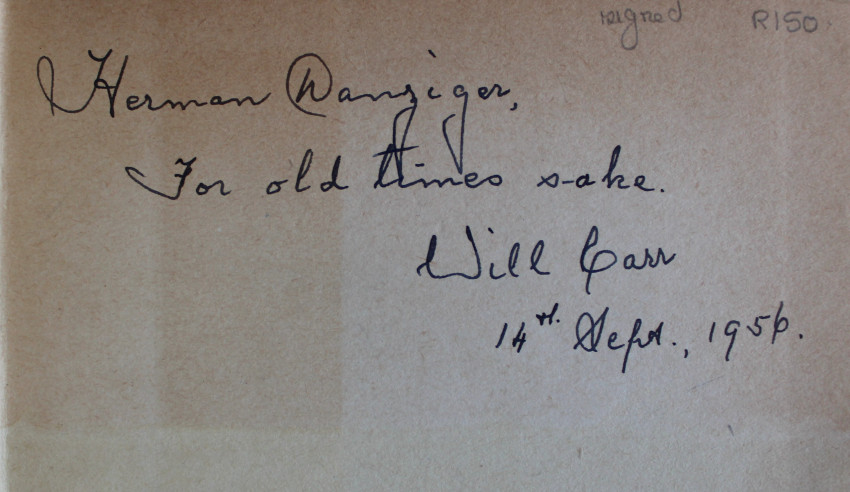 signed R150
Herman Danziger,
For old times sake.
Will Carr
14th. Sept., 1956.